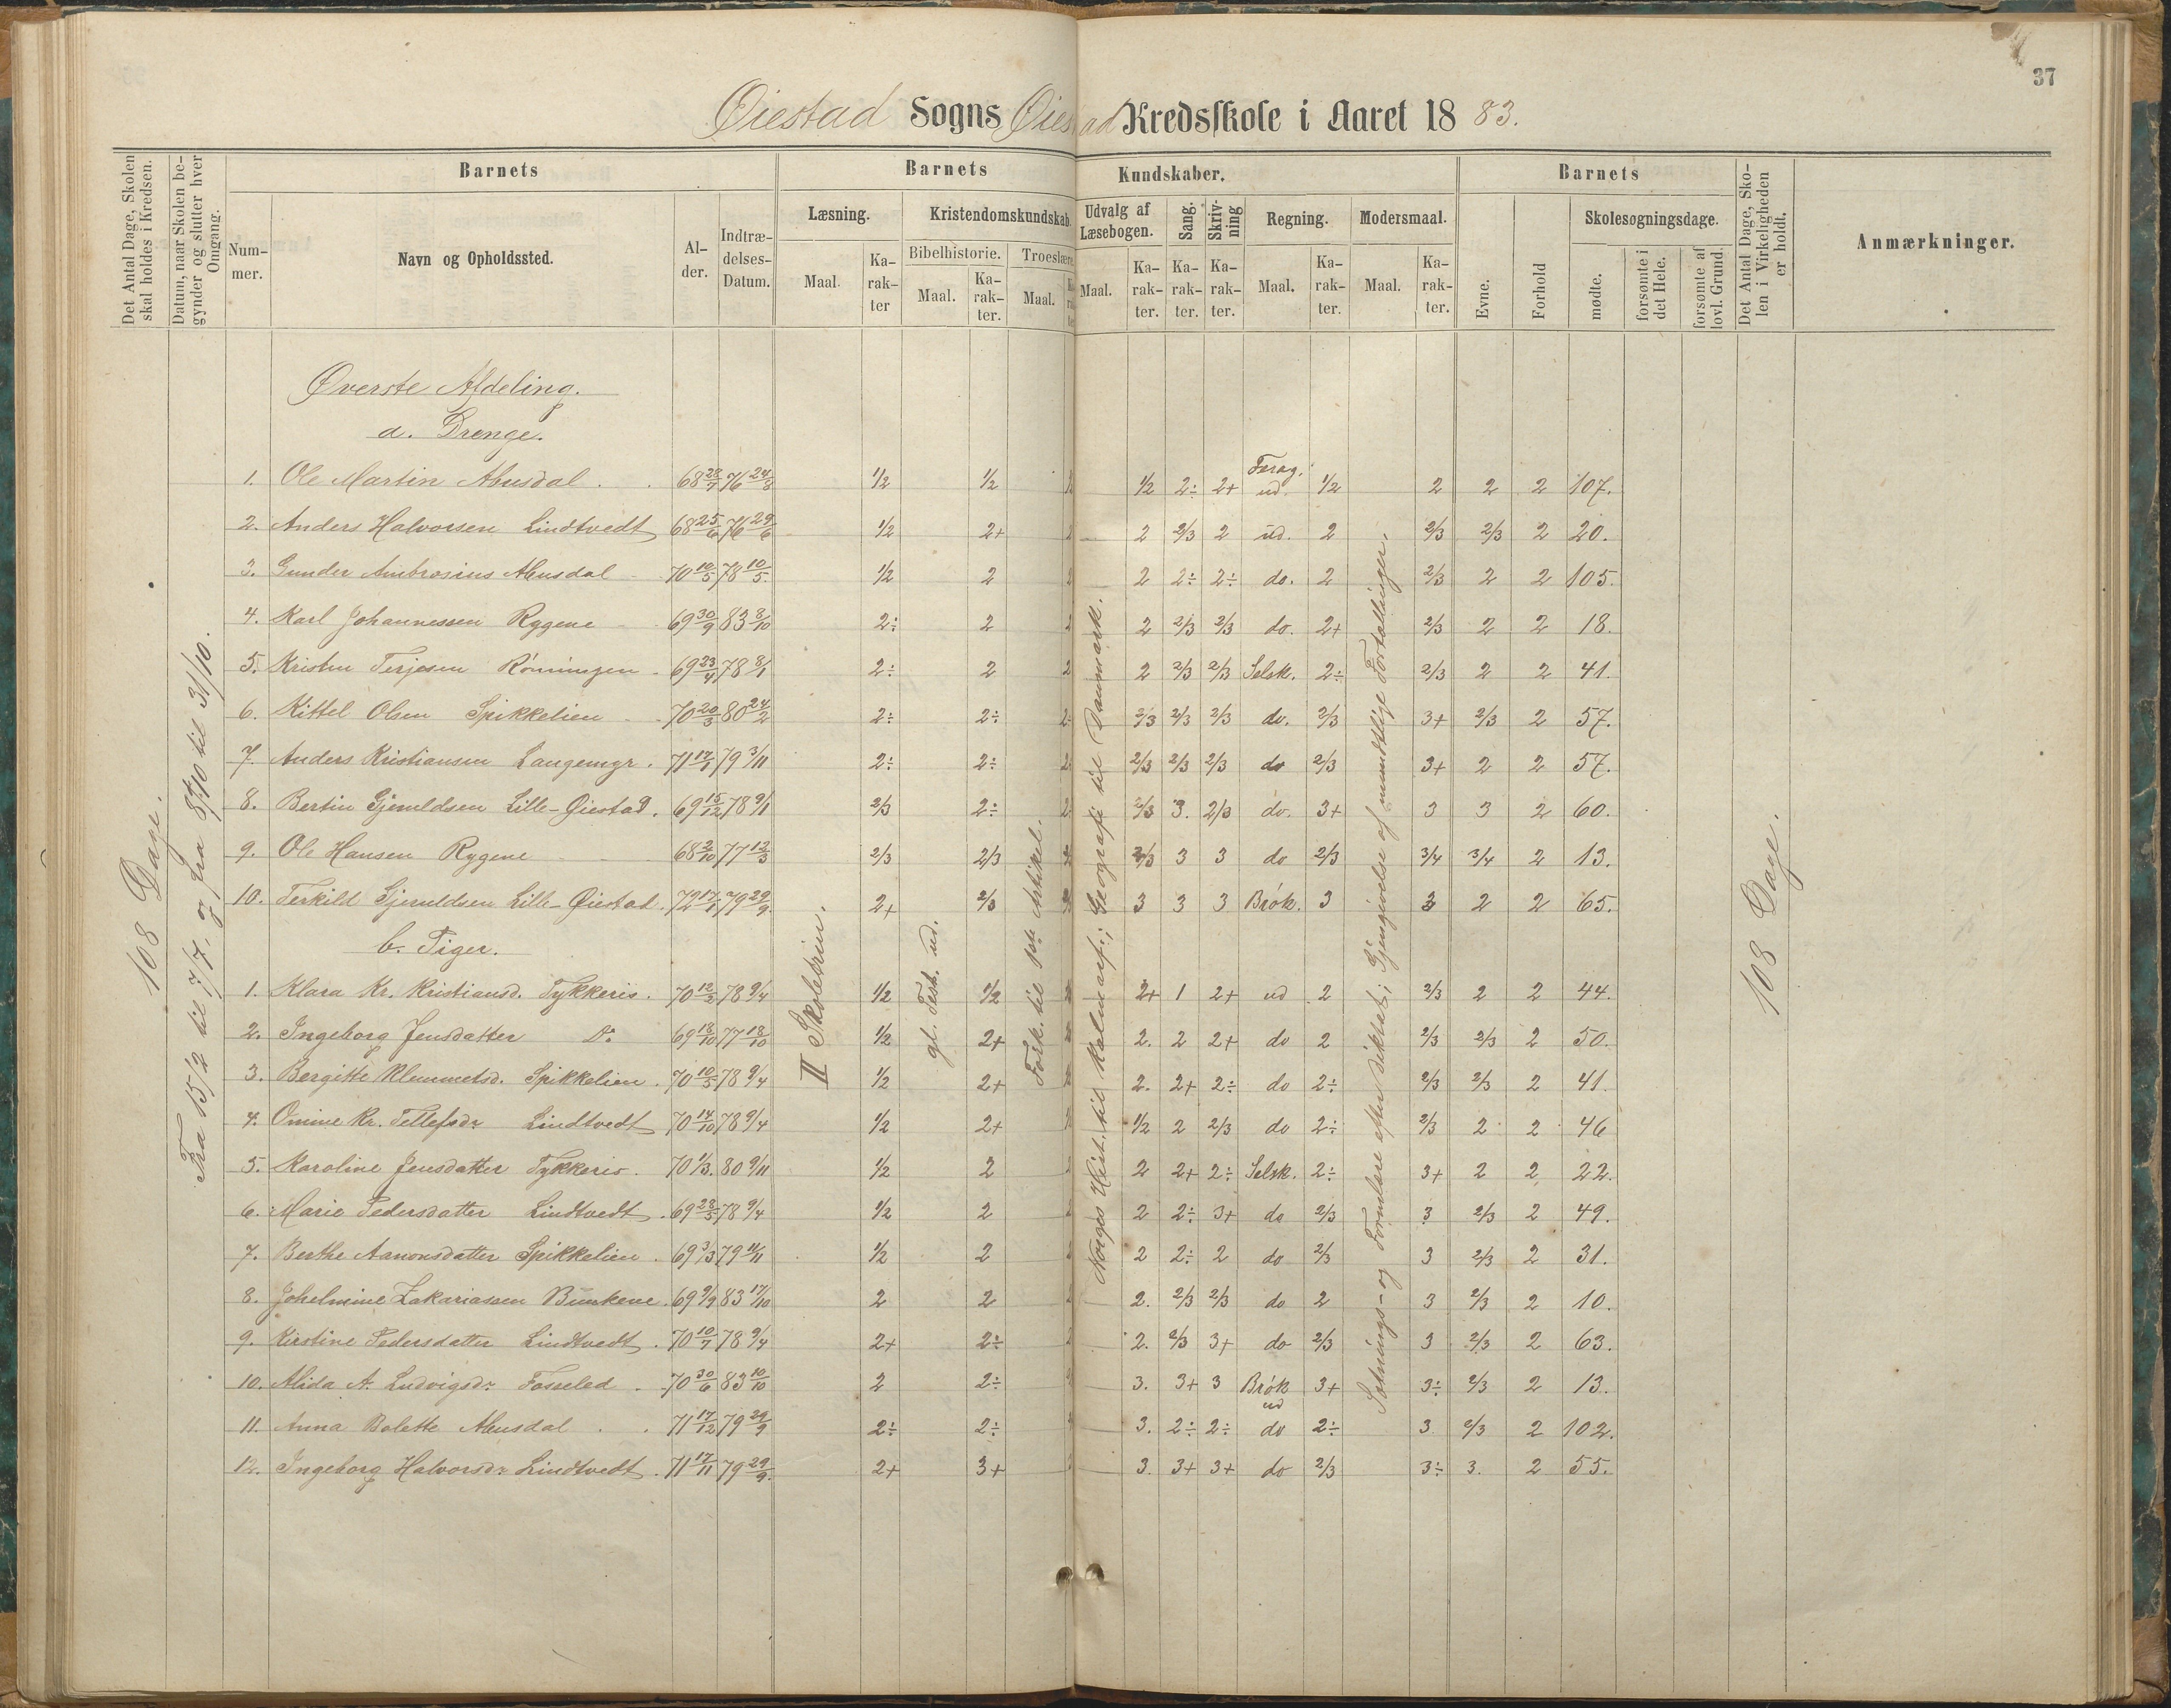 37
Øiestad Sogns Øiestad Kredsskole i Aaret 1883.
Det Antal Dage, Skolen skal holdes i Kredsen.
Datum, naar Skolen begynder og slutter hver Omgang.
Barnets
Nummer.
Navn og Opholdssted.
Alder.
Indtrædelses-Datum.
Barnets Kundskaber.
Læsning.
Maal.
Karakter
Kristendomskundskab.
Bibelhistorie.
Maal.
Karakter.
Troeslære.
Maal.
Udvalg af Læsebogen.
Maal.
Karakter.
Sang.
Karakter.
Skrivning
Karakter.
Regning.
Maal.
Karakter.
Modersmaal.
Maal.
Karakter.
Barnets
Evne.
Forhold
Skolesøgningsdage.
mødte.
forsømte i det Hele.
forsømte af lovl. Grund.
Det Antal Dage, Skolen i Virkeligheden er holdt.
Anmærkninger.
108 Dage.
Fra 15/2 til 7/7, og fra 8/10 til 31/10.
II Skoletrin.
gl. Test. ud.
Fork. til 1ste Artikel.
Norges Hist. til Kalmarf.; Geografi til Danmark.
Sætnings- og Formlære efter diktat; Gjengivelse af mundtlige Fortællinger.
108 Dage.
Øverste Afdeling.
a. Drenge.
1. Ole Martin Abusdal . . 68 28/7 76 24/8 1/2 1/2 1/2 2÷ 2+ Forag. ud. 1/2 2 2 2 107.
2. Anders Halvorsen Lindtvedt 68 25/6 76 29/6 1/2 2+ 2 2/3 2 ud. 2 2/3 2/3 2 20.
3. Gunder Ambrosius Abusdal 70 10/5 78 10/5 1/2 2 2 2÷ 2÷ do. 2 2/3 2 2 105.
4. Karl Johannessen Rygene 69 30/9 83 8/10 2÷ 2 2 2/3 2/3 do. 2+ 2/3 2 2 18.
5. Kristen Terjesen Rönningen 69 23/4 78 8/1 2÷ 2 2 2/3 2/3 Selsk. 2÷ 2/3 2 2 41.
6. Kittel Olsen Spikkelien 70 20/3 80 24/2 2÷ 2÷ 2/3 2/3 2/3 do. 2/3 3+ 2/3 2 57.
7. Anders Kristiansen Langemyr . 71 17/1 79 3/11 2÷ 2÷ 2/3 2/3 2/3 do 2/3 3+ 2 2 57.
8. Bertin Gjeruldsen Lille-Øiestad . 69 15/12 78 9/1 2/3 2÷ 2/3 3. 2/3 do. 3+ 3 3 2 60.
9. Ole Hansen Rygene 68 2/10 77 12/3 2/3 2/3 2/3 3 3 do 2/3 3/4 3/4 2 13.
10. Terkild Gjeruldsen Lille-Øiestad . 72 17/1 79 29/9 2+ 2/3 3 3 3 Brök. 3 3 2 2 65.
b. Piger.
1. Klara Kr. Kristiansd. Tykkeris . 70 12/2 78 9/4 1/2 1/2 2+ 1 2+ ud 2 2/3 2 2 44.
2. Ingeborg Jensdatter Do 69 18/10 77 18/10 1/2 2+ 2. 2 2+ do 2 2/3 2/3 2 50.
3. Bergitte Klemmetsd. Spikkelien . 70 10/5 78 9/4 1/2 2+ 2. 2+ 2÷ do 2÷ 2/3 2/3 2 41.
4. Omine Kr. Tellefsdr Lindtvedt 70 14/10 78 9/4 1/2 2+ 1/2 2 2/3 do 2÷ 2/3 2 2 46
5. Karoline Jensdatter Tykkeris . 70 1/3. 80 9/11 1/2 2 2 2+ 2÷ Selsk. 2÷ 3+ 2 2 22.
6. Marie Pedersdatter Lindtvedt . 69 28/5 78 9/4 1/2 2 2 2÷ 3+ do 2/3 3 2/3 2 49.
7. Berthe Aanonsdatter Spikkelien . 69 3/3 79 11/11 1/2 2 2 2÷ 2 do 2/3 3 2/3 2 31.
8. Johelmine Zakariassen Buskene . 69 9/9 83 17/10 2 2 2. 2/3 2/3 do 2 3 2/3 2 10.
9. Kirstine Pedersdatter Lindtvedt . 70 10/7 78 9/4 2+ 2÷ 2. 2/3 3+ do 2/3 3 2/3 2 63.
10. Alida A. Ludvigsdr Fosseled . 70 30/6 83 10/10 2 2÷ 3. 3+ 3 Brök 3+ 3÷ 2/3 2 13.
11. Anna Bolette Abusdal . . 71 17/12 79 29/9 2÷ 2÷ 3. 2÷ 2÷ ud do 2÷ 3 2/3 2 102.
12. Ingeborg Halvorsdr Lindtvedt . 71 17/11 79 29/9. 2+ 3+ 3. 3+ 3+ do 2/3 3÷ 3. 2 55.